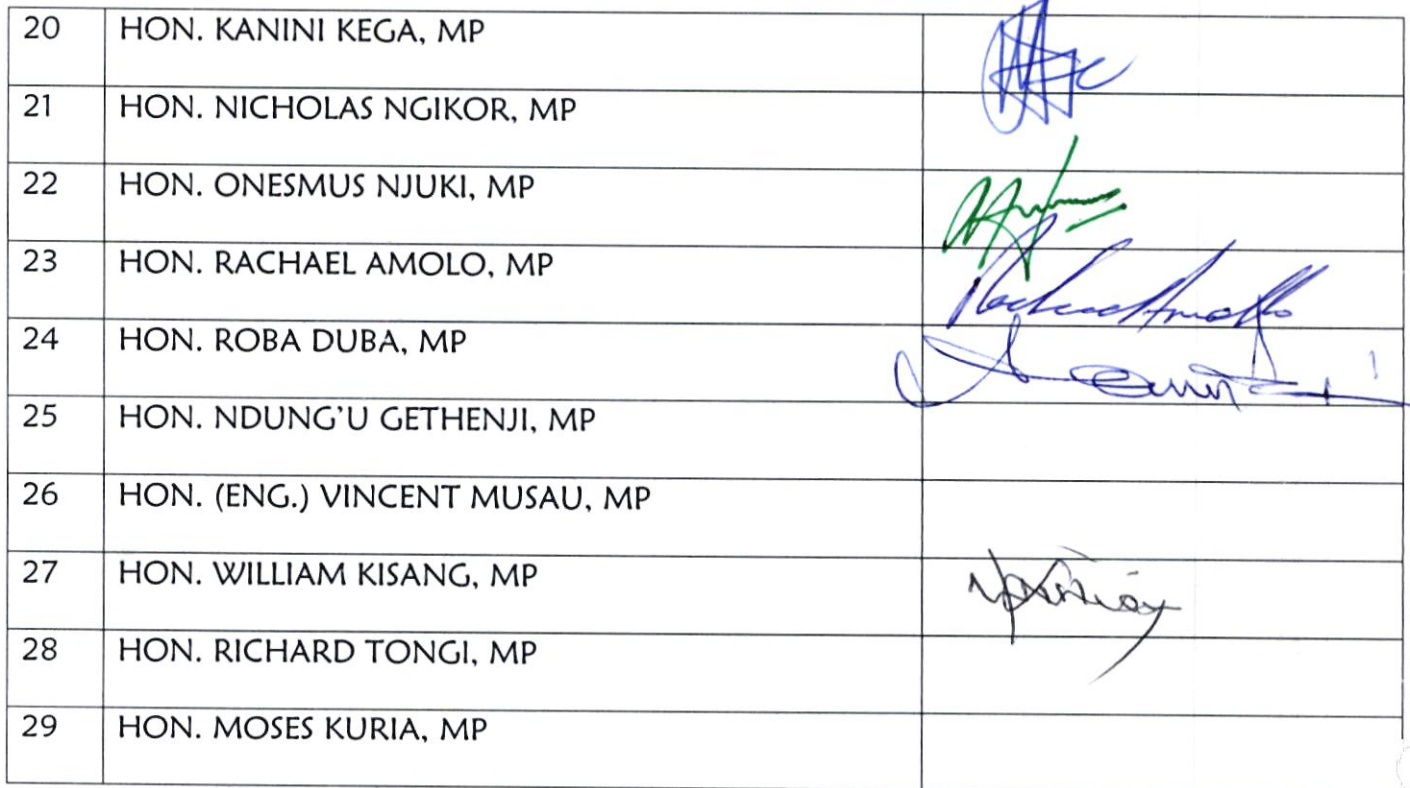 20 HON. KANINI KEGA, MP
21 HON. NICHOLAS NGIKOR, MP
22 HON. ONESMUS NJUKI, MP
23 HON. RACHAEL AMOLO, MP
24 HON. ROBA DUBA, MP
25 HON. NDUNG'U GETHENJI, MP
26 HON. (ENG.) VINCENT MUSAU, MP
27 HON. WILLIAM KISANG, MP
28 HON. RICHARD TONGI, MP
29 HON. MOSES KURIA, MP